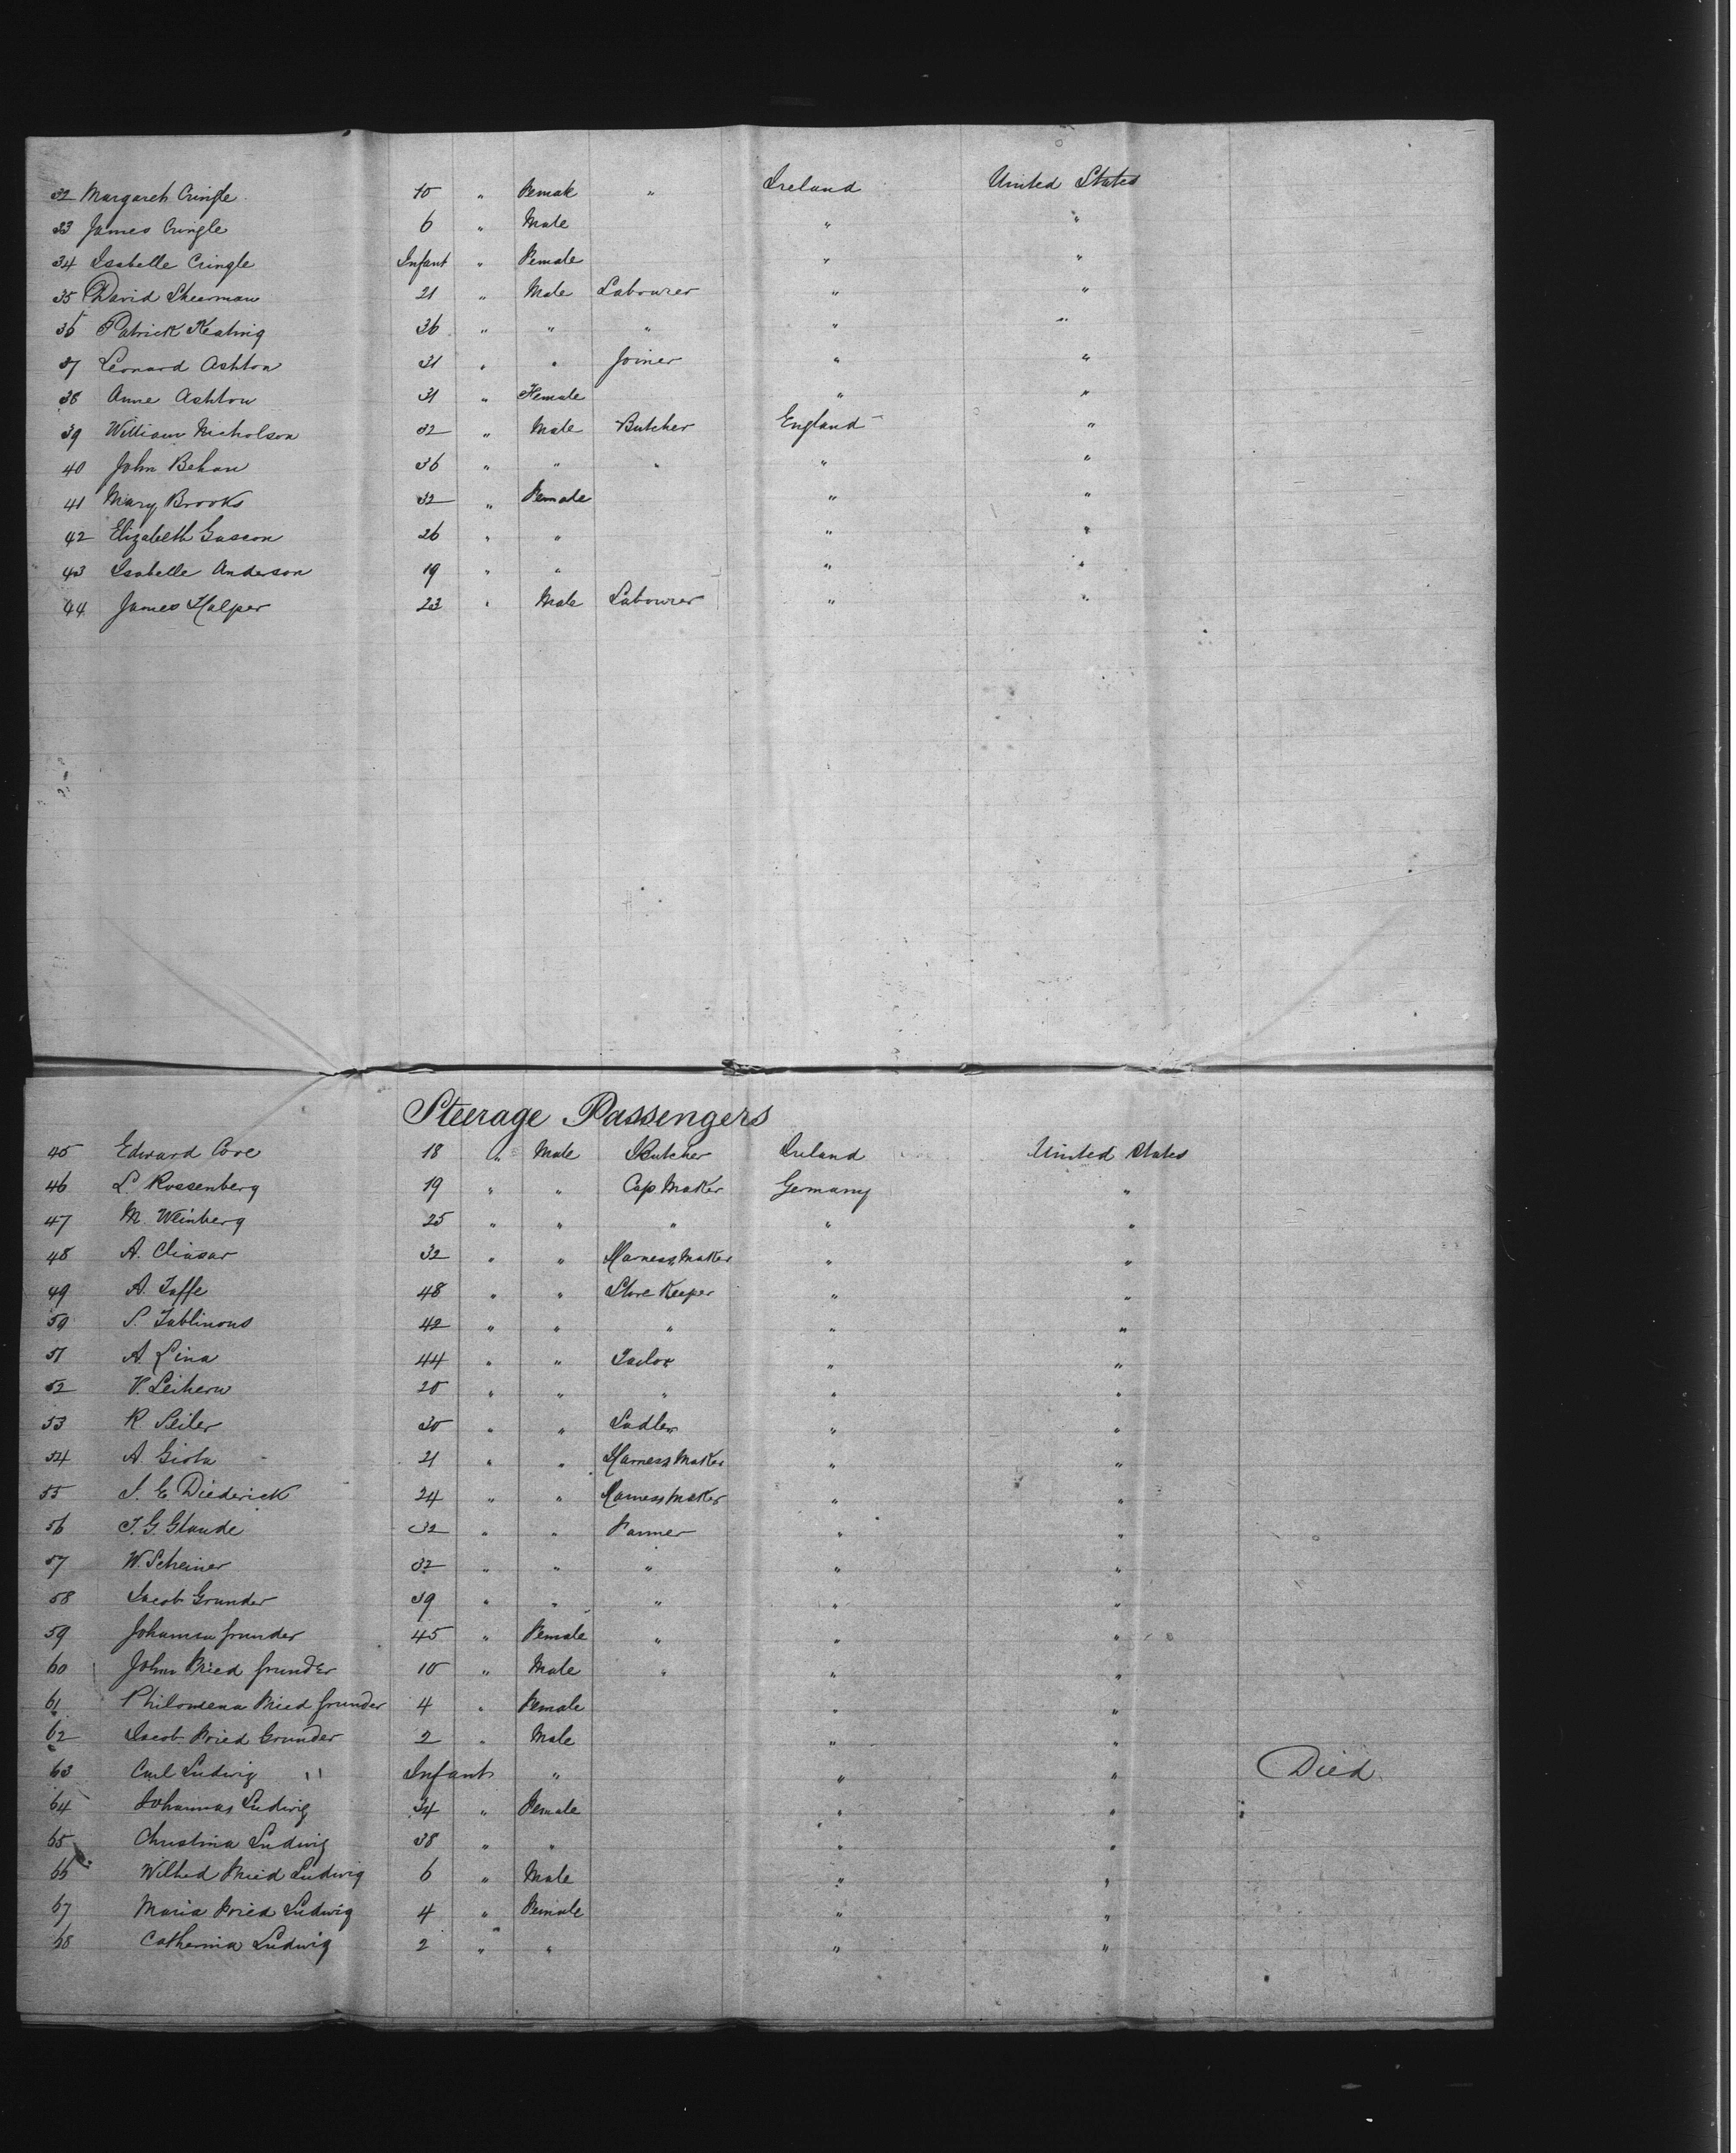 32 Margareth Cringle 10 " Female " Ireland United States
33 James Cringle 6 " Male " "
34 Isabelle Cringle Infant " Female " "
35 David Sheerman 21 " Male Labourer " "
36 Patrick Keating 36 " " " " "
37 Leonard Ashton 31 " " Joiner " "
38 Anne Ashton 31 " Female " "
39 William Nicholson 32 " Male Butcher England "
40 John Behan 36 " " " " "
41 Mary Brooks 32 " Female " "
42 Elizabeth Gasson 26 " " " "
43 Isabelle Anderson 19 " " " "
44 James Halper 23 " Male Labourer " "
Steerage Passengers
45 Edward Core 18 " Male Butcher Ireland United States
46 L. Rossenberg 19 " " Cap Maker Germany "
47 M. Weinberg 25 " " " " "
48 A. 32 " " Harness Maker " "
49 A. Jaffe 48 " " Store Keeper " "
50 S. 42 " " " " "
51 A. Lina 44 " " Tailor " "
52 20 " " " " "
53 R. Seiler 30 " " Sadler " "
54 A. 21 " " Harness Maker " "
55 J. E. Diederick 24 " " Harness Maker " "
56 J. G. Glaude 32 " " Farmer " "
57 W. Scheiner 32 " " " " "
58 Jacob Grunder 39 " " " " "
59 Johanna Grunder 45 " Female " " "
60 John Fried Grunder 10 " Male " " "
61 Philomena Fried Grunder 4 " Female " "
62 Jacob Fried Grunder 2 " Male " "
63 Carl Ludwig " Infant " " " Died
64 Johannas Ludwig 34 " Female " "
65 Christina Ludwig 38 " " " "
66 Wilhed Fried Ludwig 6 " Male " "
67 Maria Fried Ludwig 4 " Female " "
68 Catherina Ludwig 2 " " " "